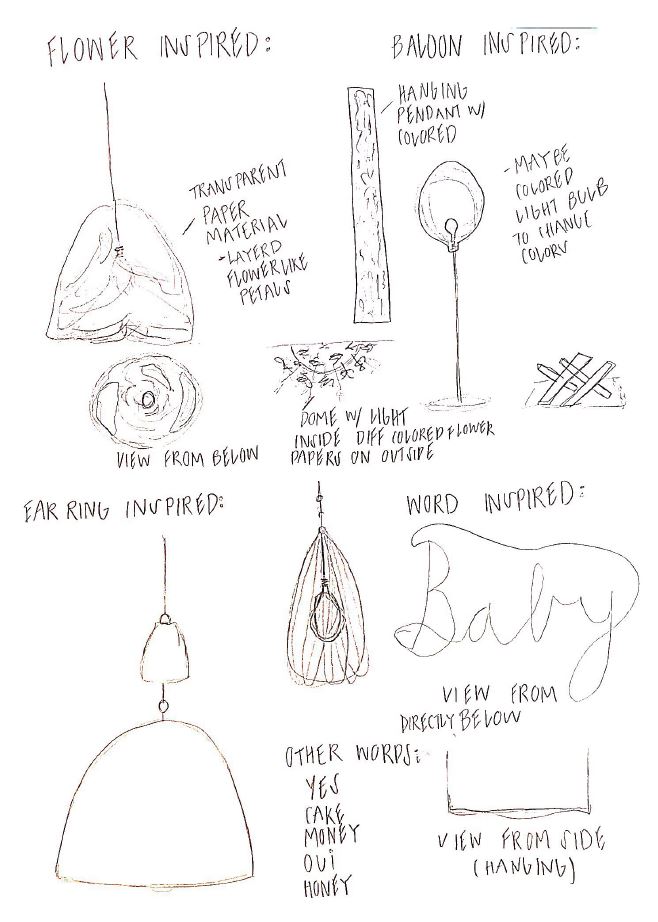 FLOWER INSPIRED:
BALOON INSPIRED:
HANGING
PENDANT W/
COLORED
TRANSPARENT
PAPER
MATERIAL
-LAYERD
FLOWERLIKE
PETALS
-MAYBE
COLORED
LIGHT BULB
TO CHANGE
COLORS
VIEW FROM BELOW
DOME W/ LIGHT
INSIDE DIFF COLORED FLOWER
PAPERS ON OUTSIDE
EAR RING INSPIRED:
WORD INSPIRED:
Baby
VIEW FROM
DIRECTLY BELOW
OTHER WORDS:
YES
CAKE
MONEY
OUI
HONEY
VIEW FROM SIDE
(HANGING)